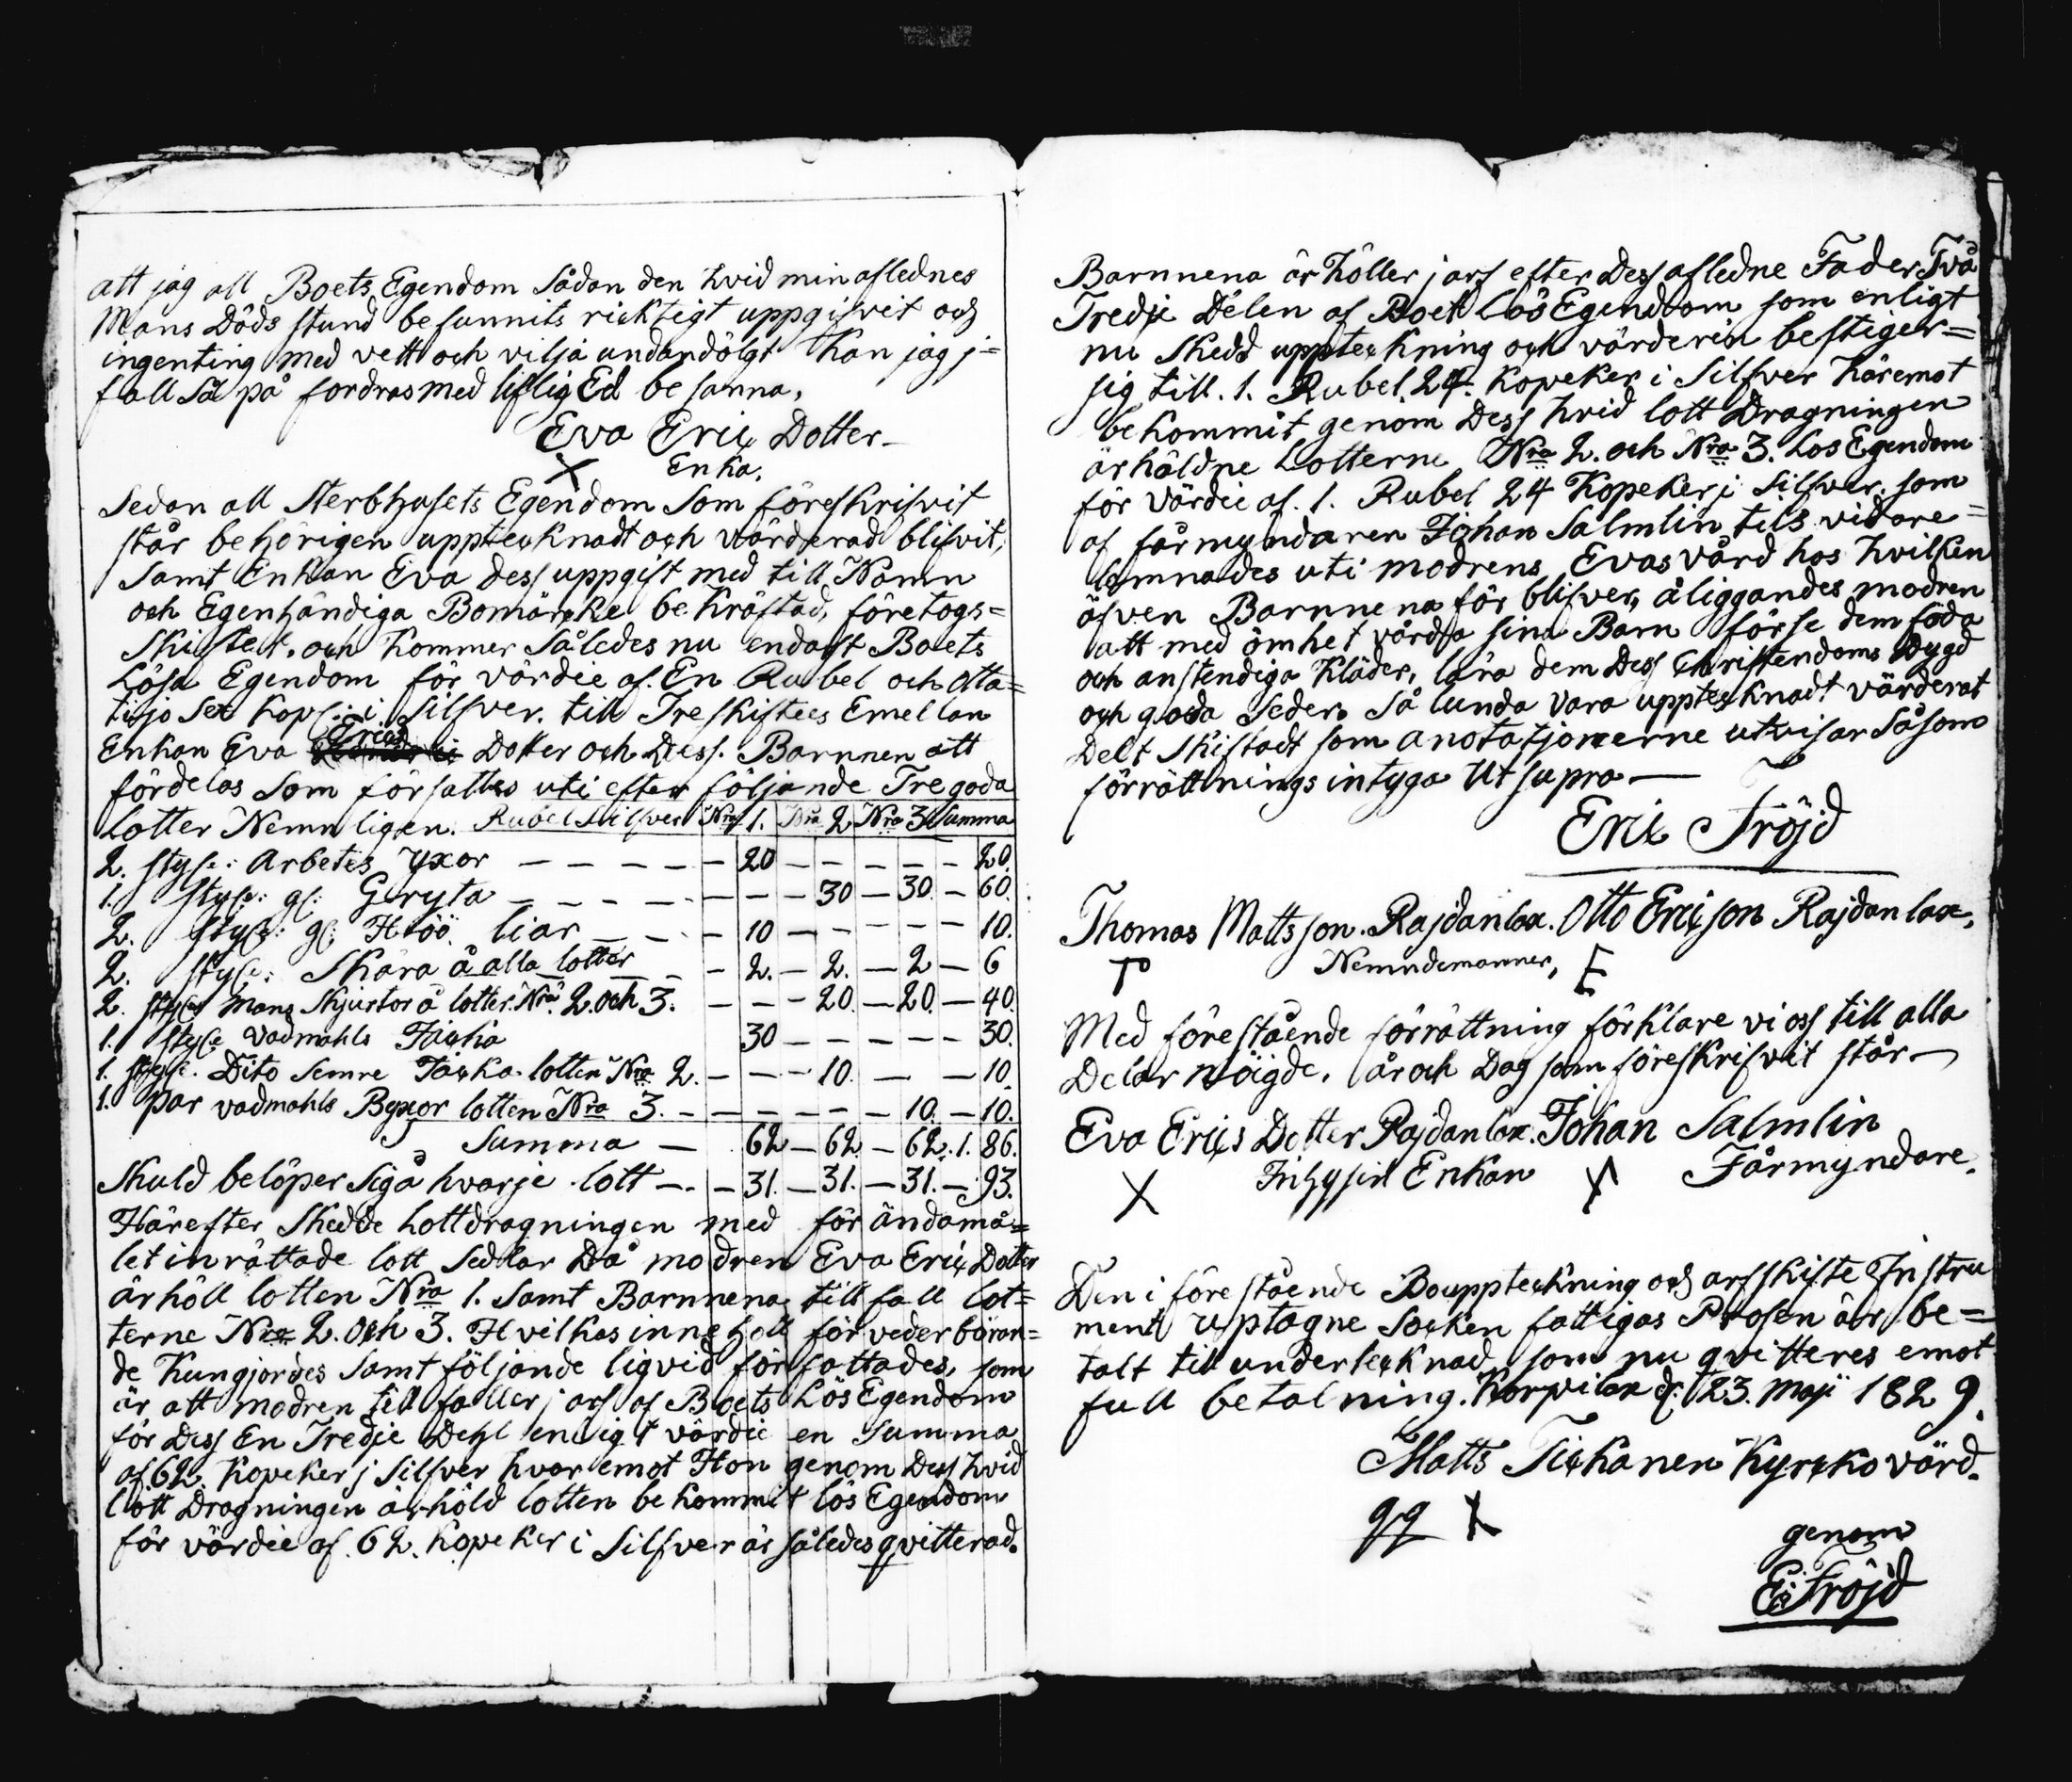 att jag all Boets Egendom Sådan den hvid min aflednes
Mans Döds stund befunnits ricktigt uppgifvit och
ingenting med vett och vilja undandölgt kan jag j=
fall Så på fordras med liflig Ed besanna.
Eva Erics Dotter
X Enka.
Sedan all Sterbhusets Egendom Som föreskrifvit
står behörigen uppteknadt och värderad blifvit,
Samt Enkan Eva dess uppgift med till Namn
och Egenhändiga Bomärke bekräftad, företogs=
Skiftet. och kommer Således nu endast Boets
Lösa Egendom för värdie af. En Rubel och otta=
tijo Sex kop: i Silfver. till Treskiftees Emellan
Enkan Eva Erics Dotter och Dess. Barnnen att
fördelas Som författas uti efter följande Tre goda
Lotter Nemnligen. Rubel Silfver Nro 1. Nro 2 Nro 3 Summa
2. styc: Arbetes yxor — — — — — 20 — — — — — 20.
1. styc: gl: Gryta — — — — — — — 30 — 30. — 60.
2. styc: gl: Höö liar — — — 10 — — — — — 10.
2. styc: Skära å alla lotter — — 2. — 2. — 2 — 6
2. styc Mans Skjortor å lotter. Nro. 2. och 3. — — — 20. — 20. — 40.
1. styc vadmahls Jacka 30 — — — — — 30.
1. styc. Dito Semre Jacka lotten Nro 2. — — — 10. — — 10.
1. par vadmahls Byxor lotten Nro 3. — — — — — — 10. — 10.
Summa — 62 — 62 — 62. 1. 86.
Skuld belöper Sig å hvarje lott — — — 31. — 31. — 31. — 93.
Härefter Skedde Lottdragningen med för ändamå=
let inrättade lott Sedlar Då modren Eva Erics Dotter
ärhöll lotten Nro 1. Samt Barnnena till fall lot=
terne Nro 2. och 3. Hvilkas innehåll för vederböran=
de kungjordes Samt följande liqvid författades, som
är att modren till faller j arf af Boets Lös Egendom
för Dess En Tredje Dehl enligt värdie en Summa
af 62. kopeker j Silfver hvaremot Hon genom Dess hvid
lott Dragningen ärhöld lotten bekommit lös Egendom
för värdie af. 62. kopeker i Silfver är således qvitterad.
Barnnena är höller j arf efter Dess afledne Fader Två
Tredje Delen af Boets Lös Egendom som enligt
nu Skedd uppteckning och värderin bestiger=
sig till. 1. Rubel. 24. kopeker i Silfver häremot
bekommit genom Dess hvid lott Dragningen
ärhöldne Lotterne Nro 2. och Nro 3. Lös Egendom
för värdie af. 1. Rubel 24 kopeker i Silfver, som
af förmyndaren Johan Salmlin tils vidare=
lemnades uti modrens Evas vård hos hvilken
äfven Barnnena för blifver, åliggandes modren
att med ömhet vårda sina Barn förse dem föda
och anstendiga kläder, lära dem Dess Christendoms Dygd
och goda Seder. Så lunda vara uppteknadt värderat
Delt Skiftadt som anotatjonerne utvisar Såsom
förrättnings intyga Ut supra —
Eric Fröjd
Thomas Matts son. Rajdanlax. Otto Ericson Rajdanlax,
T Nemndemanner, E
Med förestående förrättning förklare vi oss till alla
Delar nöigde, år och Dag som föreskrifvit står —
Eva Erics Dotter Rajdanlax. Johan Salmlin
X Enkan X Förmyndare.
Den i förestående Bouppteckning och arfskifte Instru
ment uptagne Socken fattigas Prosen är be=
talt till underteknad som nu qvitteres emot
full betalning. Korpilax d: 23. Maji 1829.
Matts Tickanen Kyrcko värd.
qq X
genom
E: Fröjd